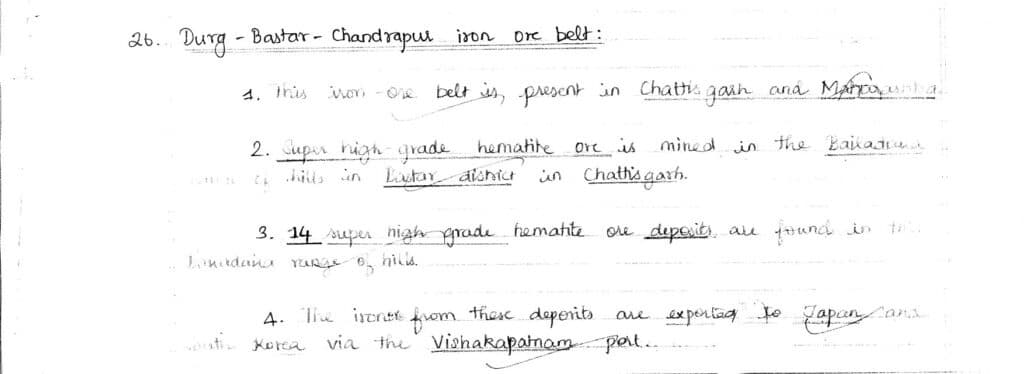 26. Durg - Bastar - Chandrapur iron ore belt:
1. This iron-ore belt is, present in Chattisgarh and
2. Super high-grade hematite ore is mined in the
of hills in Bastar district in Chattisgarh.
3. 14 super high grade hematite ore deposits are found in
range of hills.
4. The from these deposits are exported to Japan and
Korea via the Vishakapatnam port.